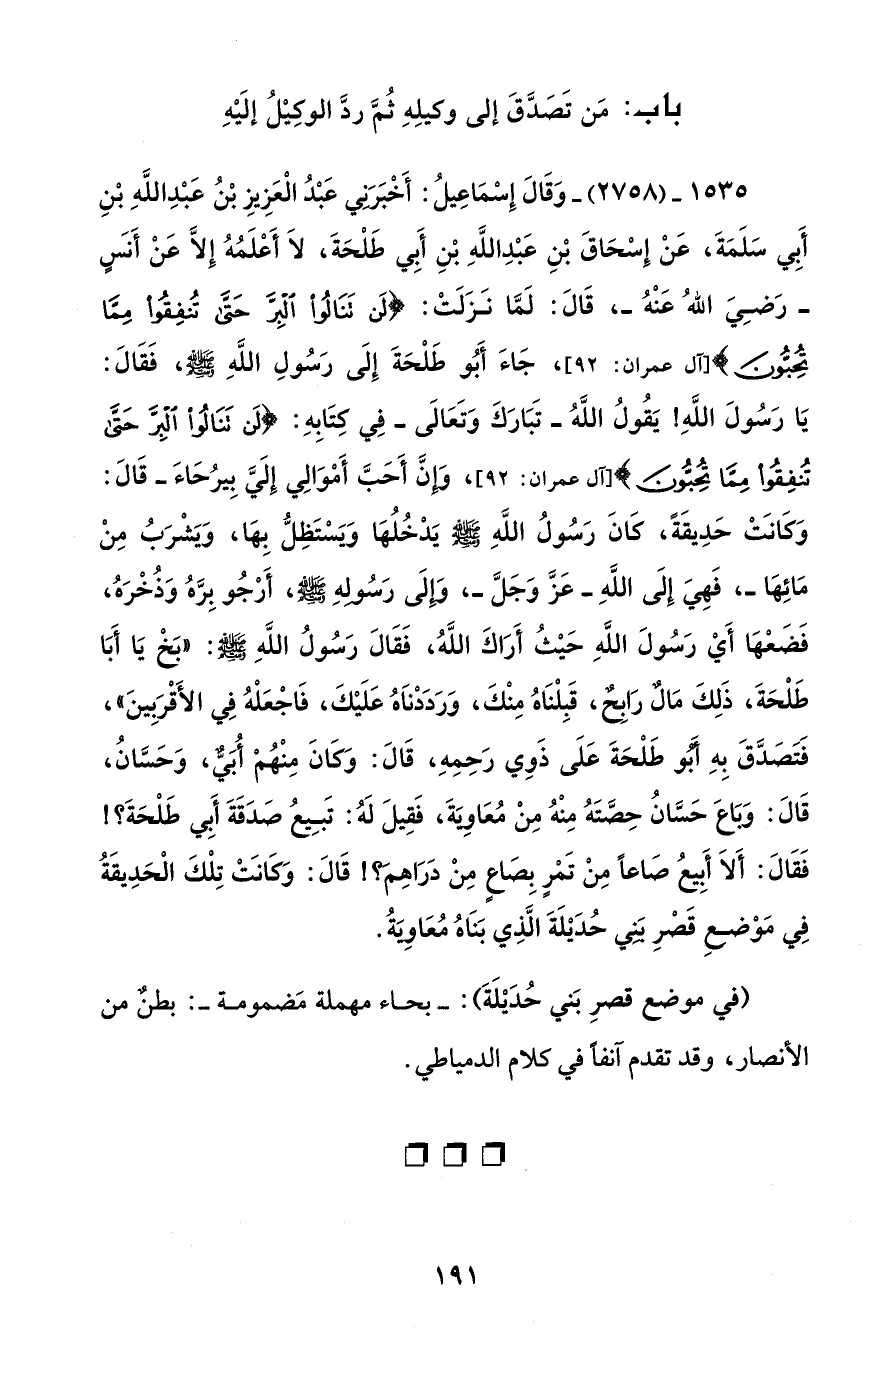 باب: مَن تَصَدَّقَ إلى وكيلِهِ ثُمَّ ردَّ الوكِيْلُ إليْهِ
١٥٣٥ ـ (٢٧٥٨) ـ وَقَالَ إِسْمَاعِيلُ: أَخْبَرَنِي عَبْدُ الْعَزِيزِ بْنُ عَبْدِاللَّهِ بْنِ
أَبِي سَلَمَةَ، عَنْ إِسْحَاقَ بْنِ عَبْدِاللَّهِ بْنِ أَبِي طَلْحَةَ، لاَ أَعْلَمُهُ إِلاَّ عَنْ أَنَسٍ
ـ رَضِيَ اللهُ عَنْهُ ـ، قَالَ: لَمَّا نَزَلَتْ: ﴿لَن نَنَالُواْ ٱلْبِرَّ حَتَّىٰ تُنفِقُواْ مِمَّا
تُحِبُّونَ﴾[آل عمران: ٩٢]، جَاءَ أَبُو طَلْحَةَ إِلَى رَسُولِ اللَّهِ ﷺ، فَقَالَ:
يَا رَسُولَ اللَّهِ! يَقُولُ اللَّهُ ـ تَبَارَكَ وَتَعَالَى ـ فِي كِتَابِهِ: ﴿لَن نَنَالُواْ ٱلْبِرَّ حَتَّىٰ
تُنفِقُواْ مِمَّا تُحِبُّونَ﴾[آل عمران: ٩٢]، وَإِنَّ أَحَبَّ أَمْوَالِي إِلَيَّ بِيرُحَاءَ ـ قَالَ:
وَكَانَتْ حَدِيقَةً، كَانَ رَسُولُ اللَّهِ ﷺ يَدْخُلُهَا وَيَسْتَظِلُّ بِهَا، وَيَشْرَبُ مِنْ
مَائِهَا ـ، فَهِيَ إِلَى اللَّهِ ـ عَزَّ وَجَلَّ ـ، وَإِلَى رَسُولِهِ ﷺ، أَرْجُو بِرَّهُ وَذُخْرَهُ،
فَضَعْهَا أَيْ رَسُولَ اللَّهِ حَيْثُ أَرَاكَ اللَّهُ، فَقَالَ رَسُولُ اللَّهِ ﷺ: «بَخْ يَا أَبَا
طَلْحَةَ، ذَلِكَ مَالٌ رَابِحٌ، قَبِلْنَاهُ مِنْكَ، وَرَدَدْنَاهُ عَلَيْكَ، فَاجْعَلْهُ فِي الأَقْرَبِينَ»،
فَتَصَدَّقَ بِهِ أَبُو طَلْحَةَ عَلَى ذَوِي رَحِمِهِ، قَالَ: وَكَانَ مِنْهُمْ أُبَيٌّ، وَحَسَّانُ،
قَالَ: وَبَاعَ حَسَّانُ حِصَّتَهُ مِنْهُ مِنْ مُعَاوِيَةَ، فَقِيلَ لَهُ: تَبِيعُ صَدَقَةَ أَبِي طَلْحَةَ؟!
فَقَالَ: أَلاَ أَبِيعُ صَاعاً مِنْ تَمْرٍ بِصَاعٍ مِنْ دَرَاهِمَ؟! قَالَ: وَكَانَتْ تِلْكَ الْحَدِيقَةُ
فِي مَوْضِعِ قَصْرِ بَنِي حُدَيْلَةَ الَّذِي بَنَاهُ مُعَاوِيَةُ.
(في موضع قصرِ بَني حُدَيْلَةَ): ـ بحاء مهملة مَضمومة ـ: بطنٌ من
الأنصار، وقد تقدم آنفاً في كلام الدمياطي.
١٩١